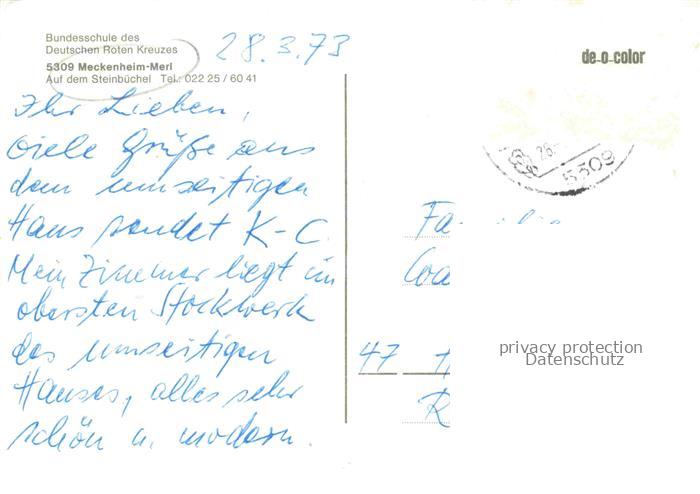 Bundesschule des
Deutschen Roten Kreuzes
5309 Meckenheim-Merl
Auf dem Steinbüchel Tel.: 022 25 / 60 41
28.3.73
de-o-color
Ihr Lieben,
viele Grüße aus
dem umseitigen
Haus sendet K-C.
Mein Zimmer liegt im
obersten Stockwerk
des umseitigen
Hauses, alles sehr
schön u. modern.
28.
5309
Fa
Coa
47
R
privacy protection
Datenschutz